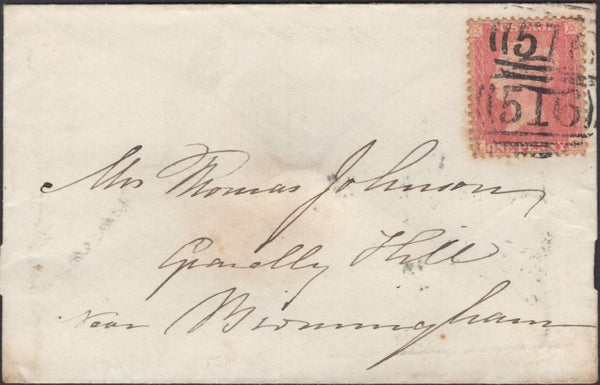 POSTAGE
516
516
ONE PENNY
Mrs Thomas Johnson
Gravelly Hill
Near Birmingham